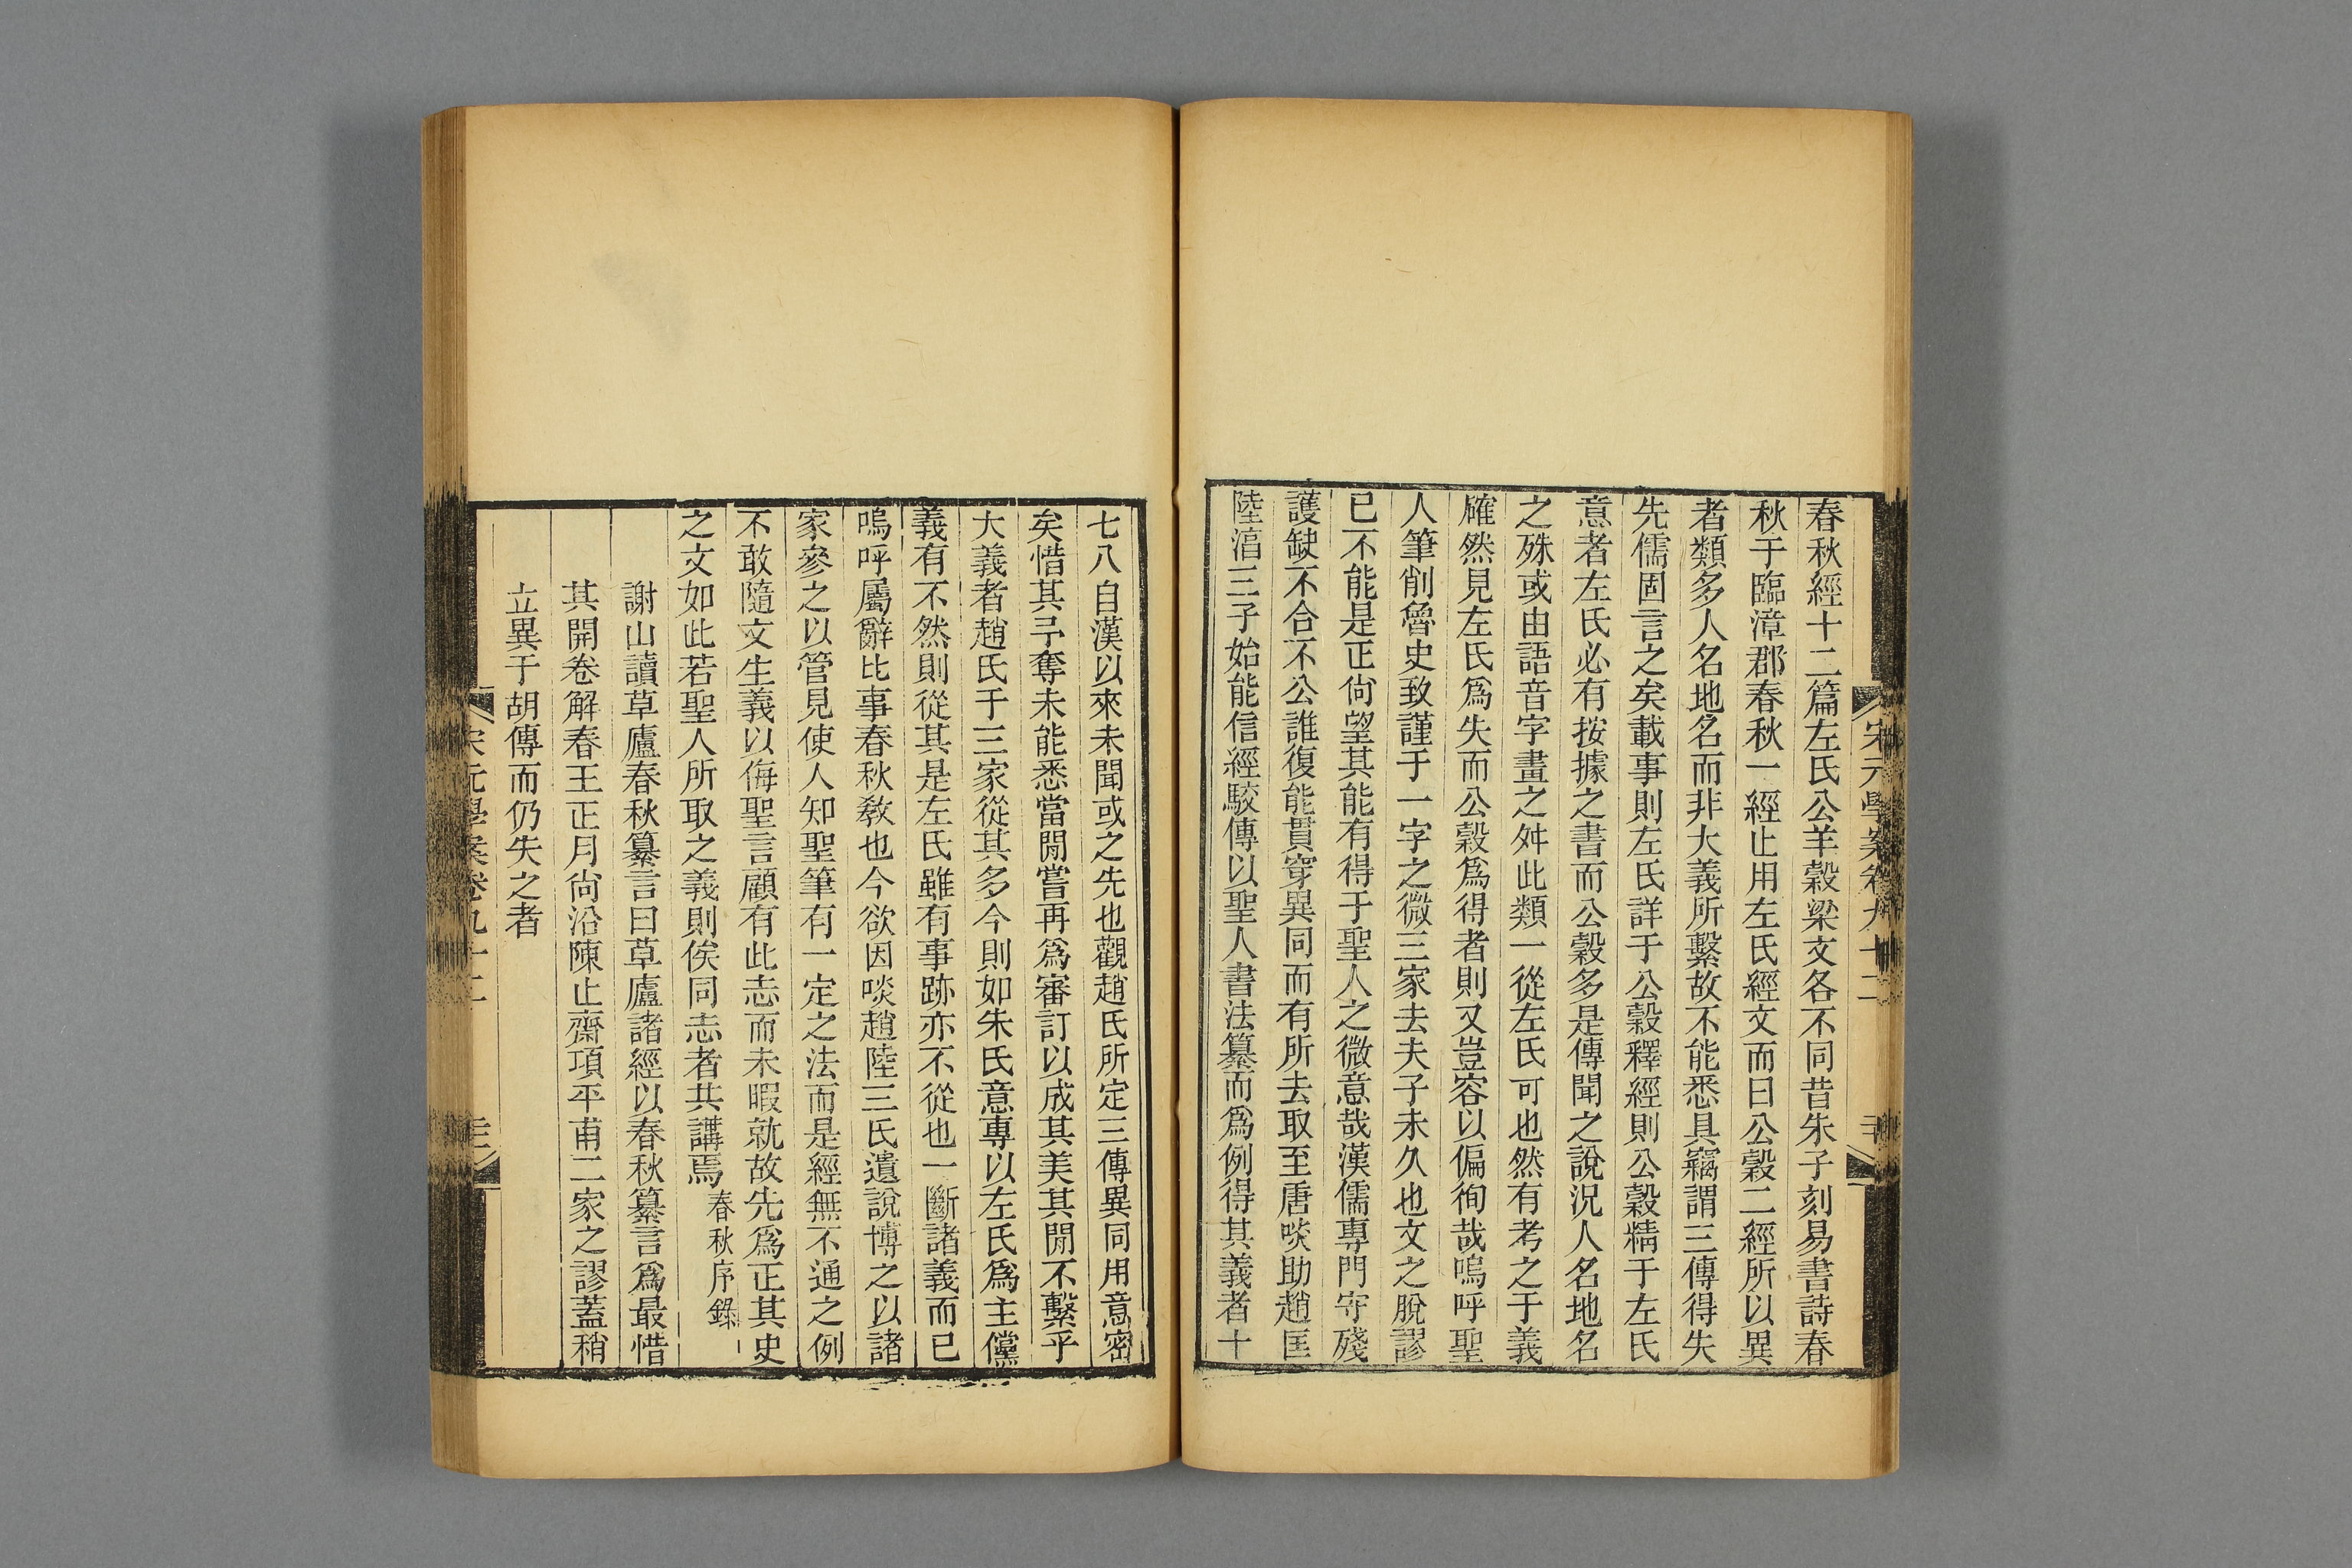 春秋經十二篇左氏公羊穀梁文各不同昔朱子刻易書詩春
秋于臨漳郡春秋一經止用左氏經文而曰公穀二經所以異
者類多人名地名而非大義所繫故不能悉具竊謂三傳得失
先儒固言之矣載事則左氏詳于公穀釋經則公穀精于左氏
意者左氏必有按據之書而公穀多是傳聞之說況人名地名
之殊或由語音字畫之舛此類一從左氏可也然有考之于義
確然見左氏爲失而公穀爲得者則又豈容以偏徇哉嗚呼聖
人筆削魯史致謹于一字之微三家去夫子未久也文之脫謬
已不能是正尙望其能有得于聖人之微意哉漢儒專門守殘
護缺不合不公誰復能貫穿異同而有所去取至唐啖助趙匡
陸淳三子始能信經駮傳以聖人書法纂而爲例得其義者十
七八自漢以來未聞或之先也觀趙氏所定三傳異同用意密
矣惜其予奪未能悉當閒嘗再爲審訂以成其美其閒不繫乎
大義者趙氏于三家從其多今則如朱氏意專以左氏爲主儻
義有不然則從其是左氏雖有事跡亦不從也一斷諸義而已
嗚呼屬辭比事春秋敎也今欲因啖趙陸三氏遺說博之以諸
家參之以管見使人知聖筆有一定之法而是經無不通之例
不敢隨文生義以侮聖言顧有此志而未暇就故先爲正其史
之文如此若聖人所取之義則俟同志者共講焉春秋序錄
謝山讀草廬春秋纂言曰草廬諸經以春秋纂言爲最惜
其開卷解春王正月尙沿陳止齋項平甫二家之謬蓋稍
立異于胡傳而仍失之者
宋元學案卷九十二